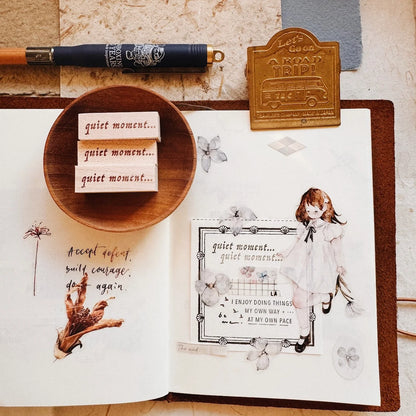 Let's Go on
A ROAD
TRIP!
quiet moment...
quiet moment...
quiet moment...
Accept defeat,
build courage,
do it again.
quiet moment...
quiet moment...
I ENJOY DOING THINGS
MY OWN WAY
AT MY OWN PACE